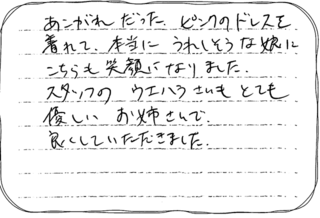 あこがれだった、ピンクのドレスを
着れて、本当にうれしそうな娘に
こちらも笑顔になりました。
スタッフの ウエハラさんもとても
優しい お姉さんで
良くしていただきました。